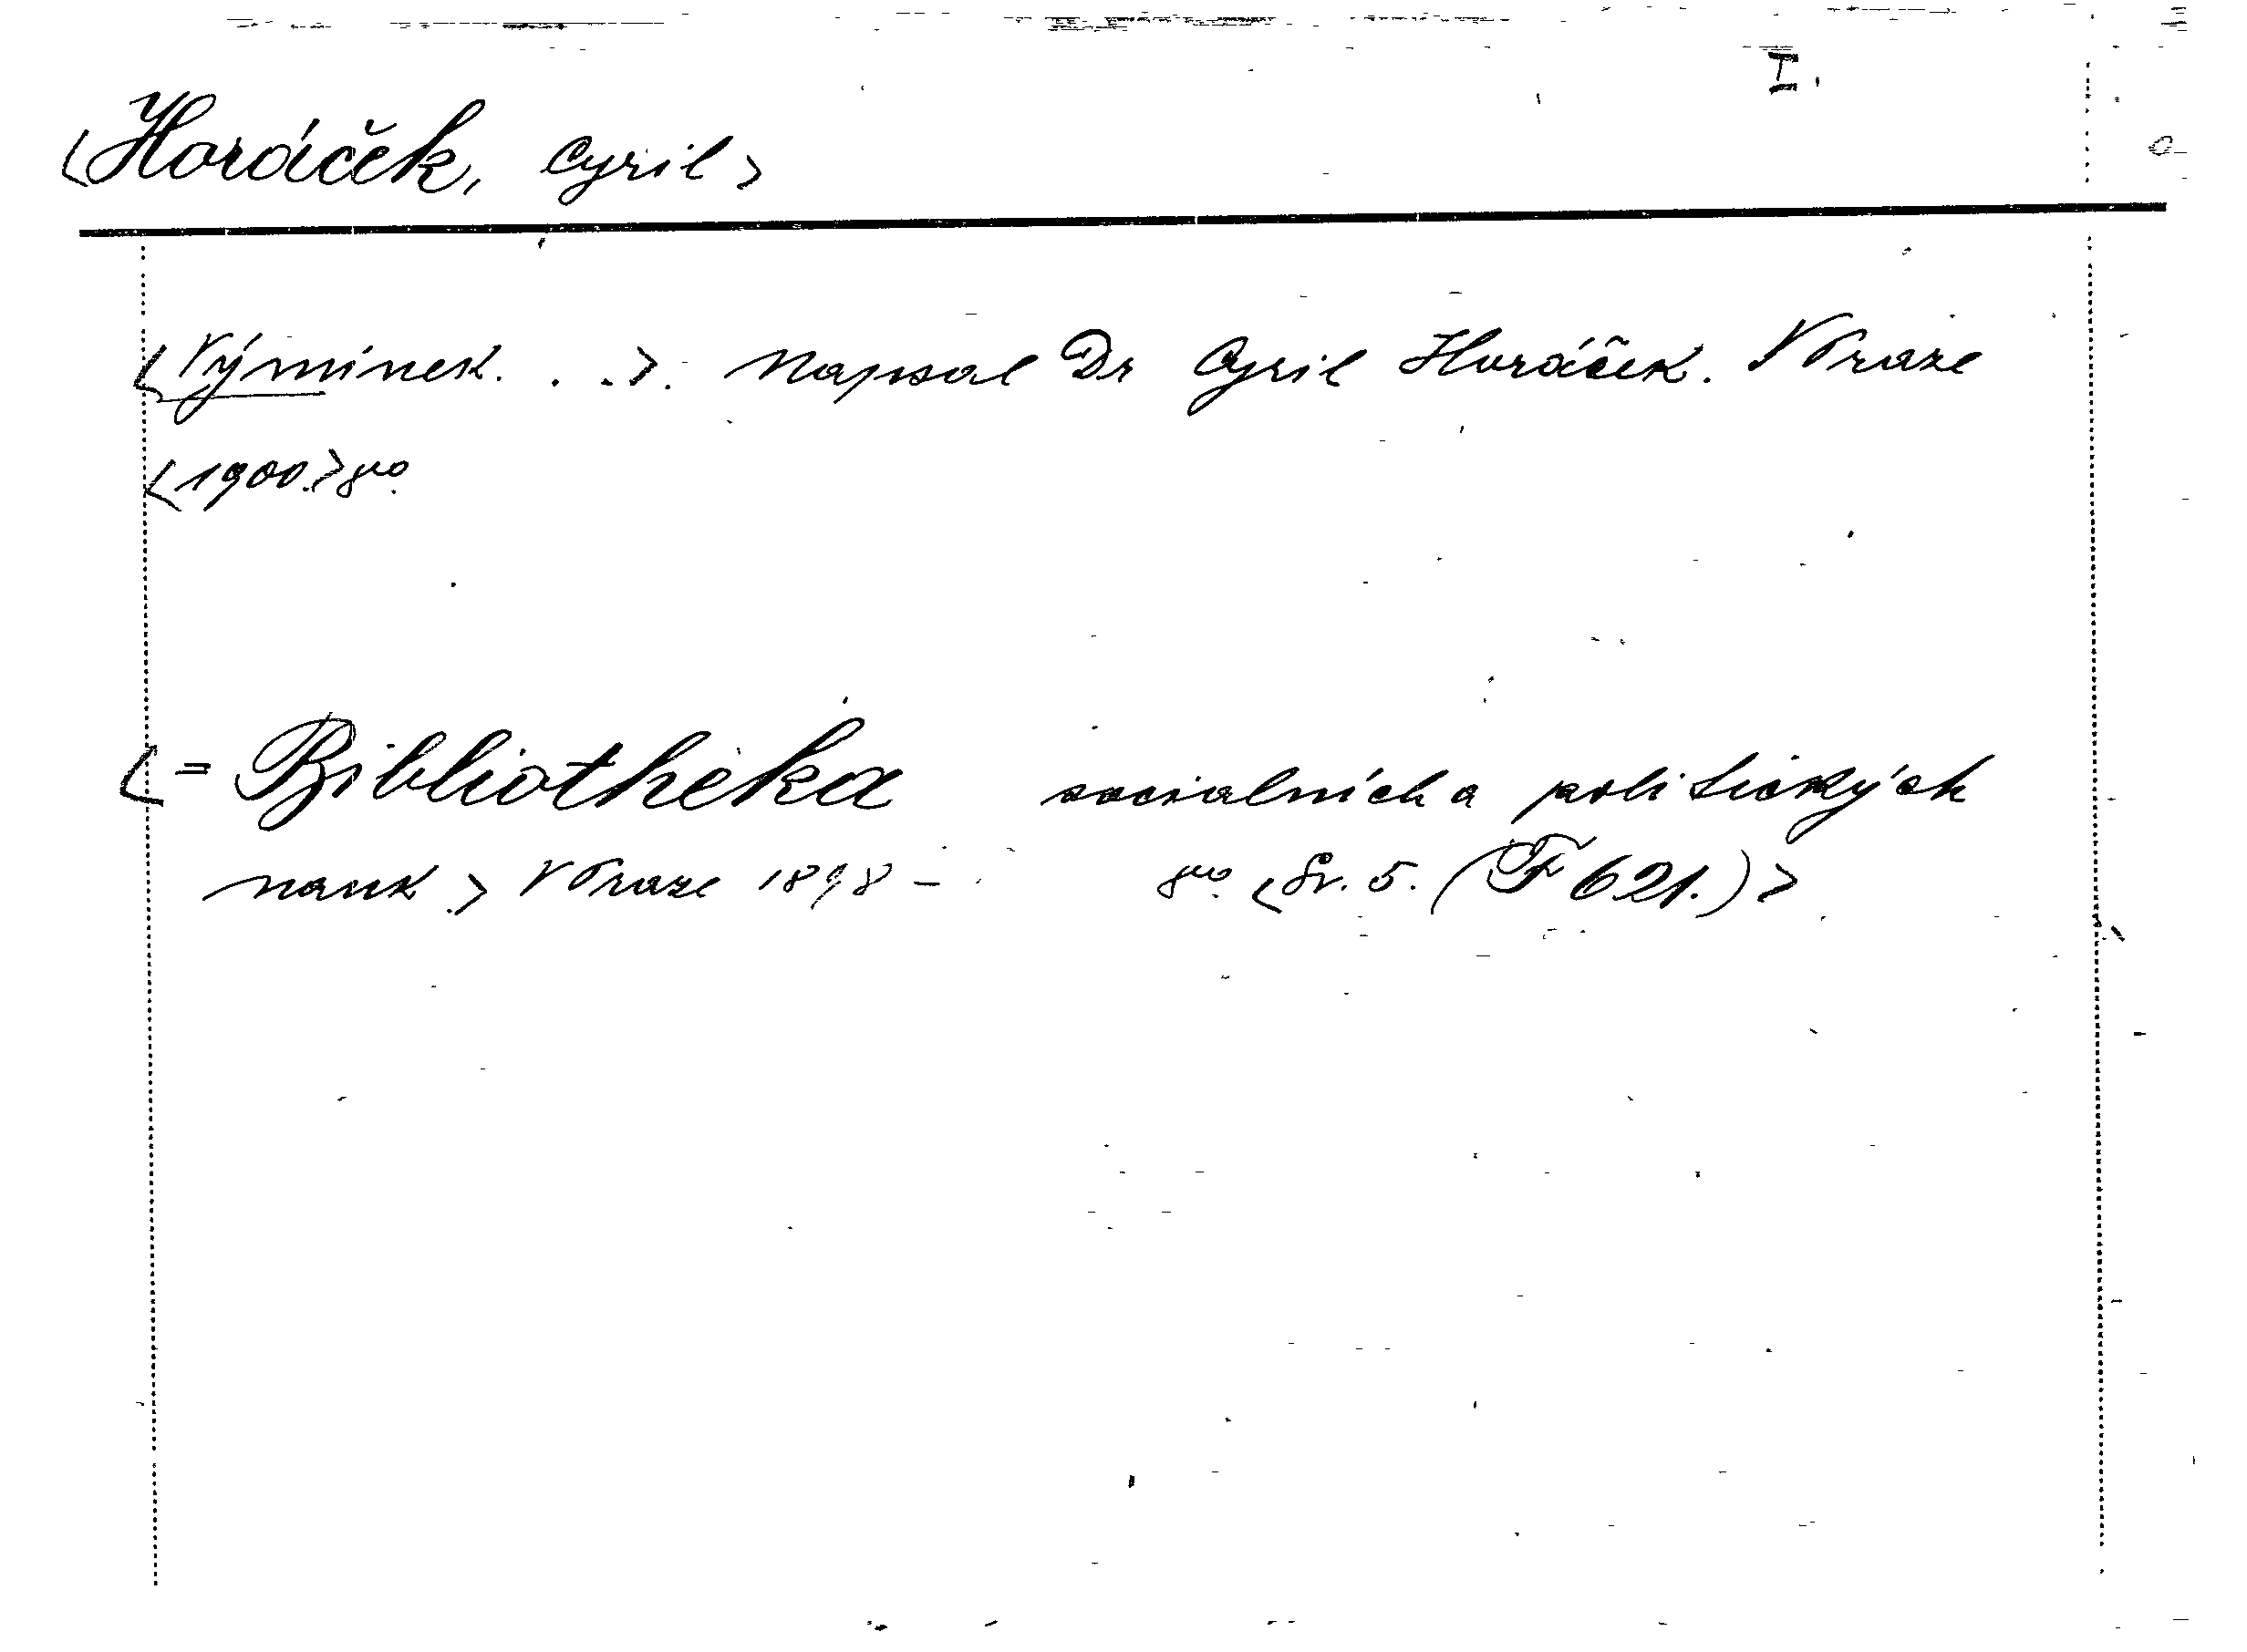 I.
<Horáček, Cyril>
<Výmínek. . .>. Napsal Dr Cyril Horáček. V Praze
<1900.> 8vo.
<= Bibliotheka socialních a politických
nauk.> V Praze 1898 - 8vo. <Sv. 5. (F 621.)>